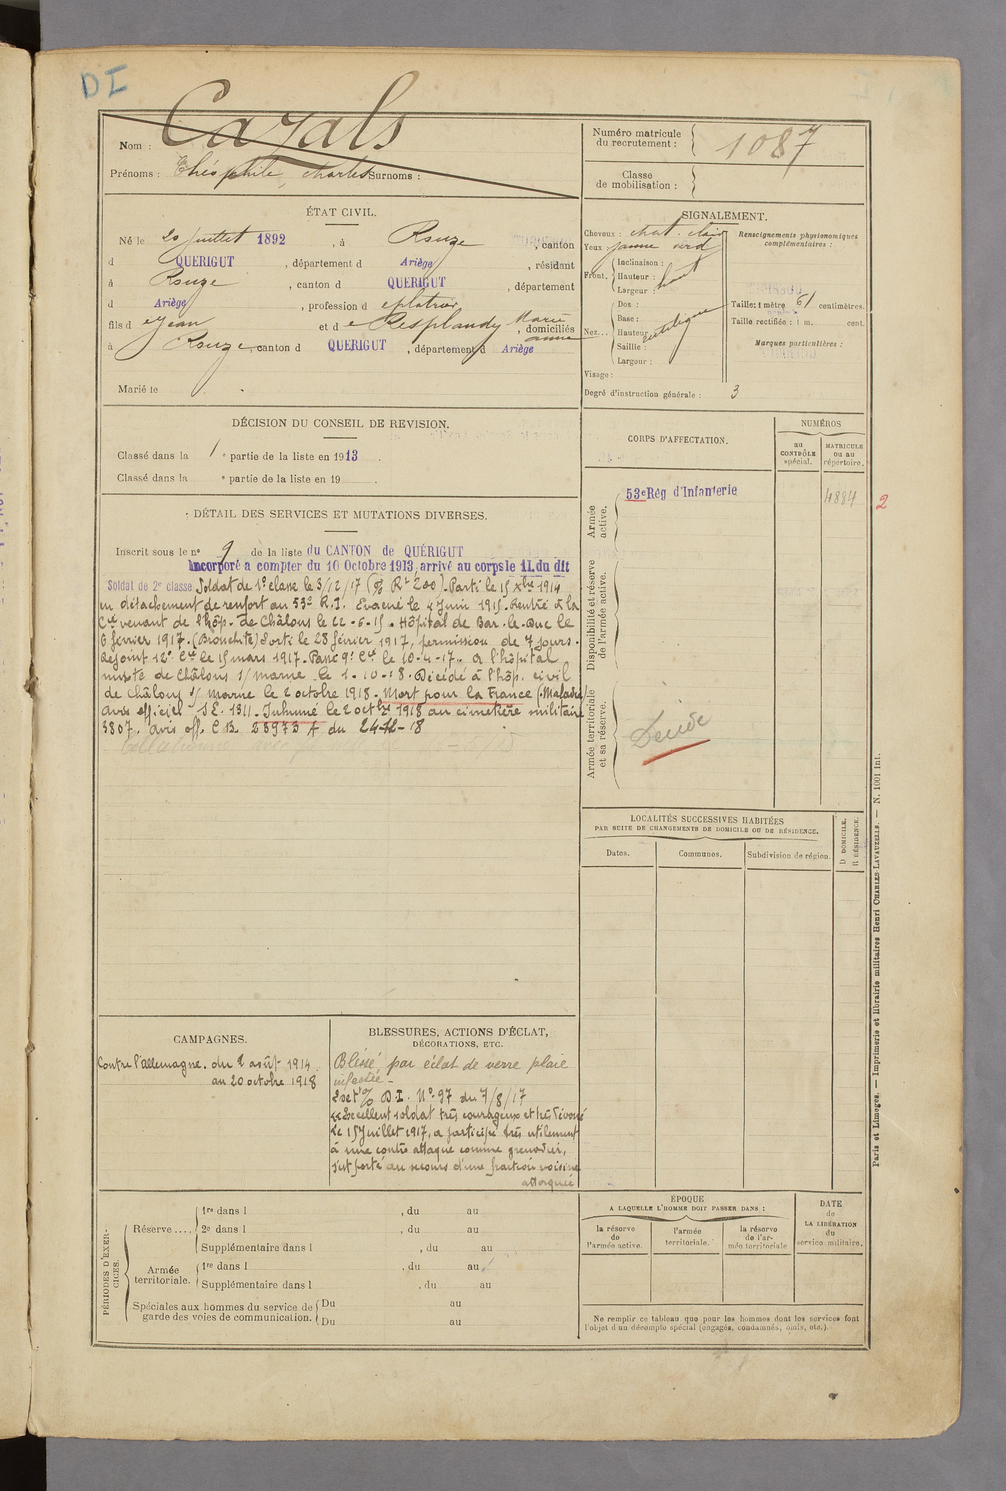 DI
Nom : Cazals
Prénoms : Théophile, Charles Surnoms :
Numéro matricule du recrutement : 1087
Classe de mobilisation :
ÉTAT CIVIL.
Né le 20 juillet 1892, à Rouze, canton
d QUERIGUT, département d Ariège, résidant
à Rouze, canton d QUERIGUT, département
d Ariège, profession d
fils d Jean et d e Resplandy Marie anne, domiciliés
à Rouze, canton d QUERIGUT, département d Ariège
Marié le
SIGNALEMENT.
Cheveux : chat. clair
Yeux jaune verd
Front. Inclinaison :
Hauteur : haut
Largeur :
Nez... Dos :
Base :
Hauteur rectiligne
Saillie :
Largeur :
Visage :
Degré d'instruction générale : 3
Renseignements physionomiques complémentaires :
Taille: 1 mètre 61 centimètres.
Taille rectifiée : 1 m. cent.
Marques particulières :
DÉCISION DU CONSEIL DE REVISION.
Classé dans la 1e partie de la liste en 1913.
Classé dans la e partie de la liste en 19
DÉTAIL DES SERVICES ET MUTATIONS DIVERSES.
Inscrit sous le n° 9 de la liste du CANTON de QUÉRIGUT
Incorporé a compter du 10 Octobre 1913, arrivé au corps le 11 du dit
Soldat de 2e classe Soldat de 1e classe le 3/12/17 (% Rt 200). Parti le 15 Xbre 1914
en détachement de renfort au 53e R.I. Evacué le 4 Juin 1915. Rentré à la
Cie venant de l'hôp. de Châlons le 22-6-15. Hôpital de Bar-le-Duc le
6 février 1917. (Bronchite) Sorti le 28 février 1917, permission de 7 jours.
Rejoint 12e Cie le 15 mars 1917. Passé 9e Cie le 10-4-17. a l'hôpital
mixte de Châlons s/ marne le 1-10-18. Décédé à l'hôp. civil
de Châlons s/ marne le 2 octobre 1918. Mort pour la France (Maladie)
avis officiel SE. 1311. Inhumé le 2 octbre 1918 au cimetière militaire
3807. avis off. C B. 23973 A du 24-12-18
CORPS D'AFFECTATION.
NUMÉROS
au CONTRÔLE spécial.
MATRICULE ou au répertoire.
Armée active.
53e Rég d'Infanterie
4884
2
Disponibilité et réserve de l'armée active.
Armée territoriale et sa réserve.
LOCALITÉS SUCCESSIVES HABITÉES
PAR SUITE DE CHANGEMENTS DE DOMICILE OU DE RÉSIDENCE.
Dates.
Communes.
Subdivision de région.
D DOMICILE.
R RÉSIDENCE.
CAMPAGNES.
Contre l'allemagne. du 2 août 1914
au 20 octobre 1918
BLESSURES, ACTIONS D'ÉCLAT,
DÉCORATIONS, ETC.
Blessé par éclat de verre plaie
infectée -
D.I. N° 97 du 7/8/17
« Excellent soldat très courageux et très dévoué
Le 15 Juillet 1917, a participé très utilement
à une contre attaque comme grenadier,
s'est porté au secours d'une fraction voisine
attaquée
PÉRIODES D'EXERCICES.
Réserve .... 1re dans l , du au
2e dans l , du au
Supplémentaire dans l , du au
Armée territoriale. 1re dans l , du au
Supplémentaire dans l , du au
Spéciales aux hommes du service de garde des voies de communication. Du au
Du au
ÉPOQUE
A LAQUELLE L'HOMME DOIT PASSER DANS :
la réserve de l'armée active.
l'armée territoriale.
la réserve de l'armée territoriale
DATE de LA LIBÉRATION du service militaire.
Ne remplir ce tableau que pour les hommes dont les services font
l'objet d'un décompte spécial (engagés, condamnés, omis, etc.).
Paris et Limoges. — Imprimerie et librairie militaires Henri CHARLES-LAVAUZELLE. — N. 1001 int.